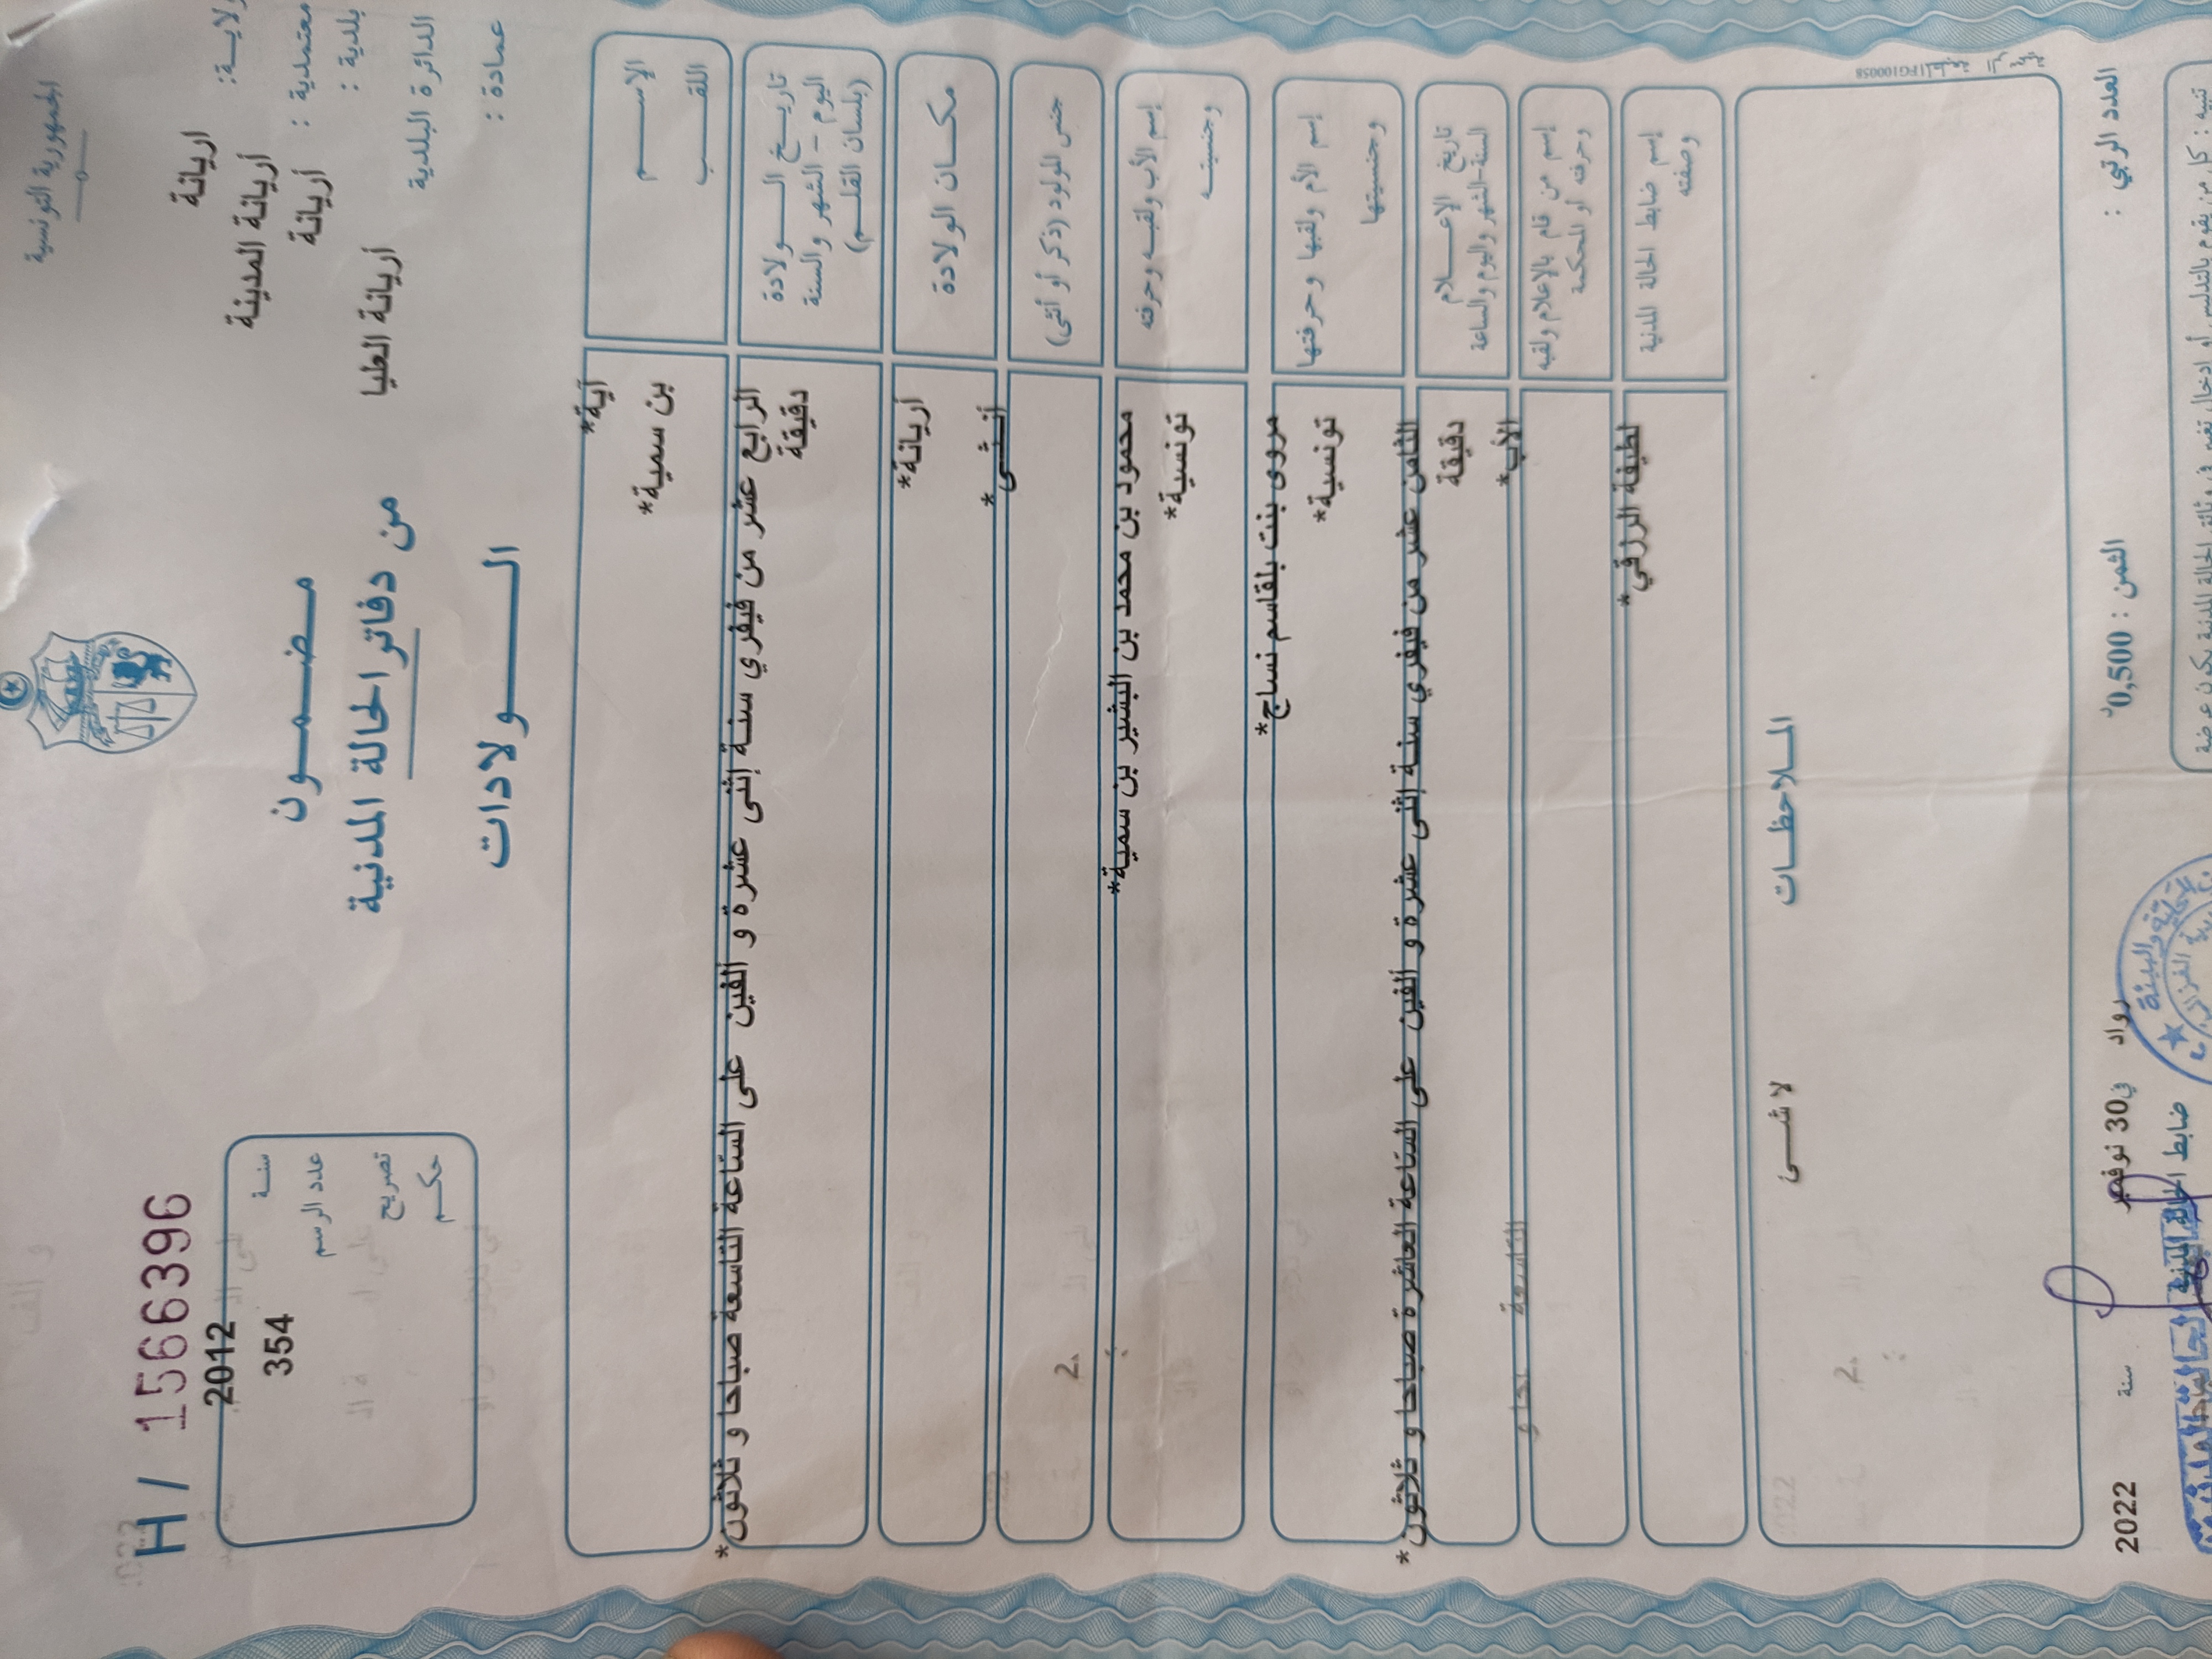 الجمهورية التونسية
H / 1566396
ولايـــة: اريانة
معتمدية : أريانة المدينة
بلدية : أريانة
الدائرة البلدية أريانة العليا
عمادة :
مضـمـــون
من دفاتر الحالة المدنية
الـــــولادات
سنـــة 2012
عدد الرسم 354
تصريح
حكـــم
الإســـــم آية*
اللقـــب بن سمية*
تاريـــخ الـــــولادة
اليوم – الشهر والسنة
(بلسان القلـــم)
الرابع عشر من فيفري سنـة إثنى عشرة و ألفين على السّاعة التاسعة صباحا و ثلاثون*
دقيقة
مكـــان الولادة أريانة*
جنس المولود (ذكر أو أنثى) أنـثـى*
إسم الأب ولقبـــه وحرفته محمود بن محمد بن البشير بن سمية*
وجنسيتـــه تونسية*
إسم الأم ولقبها وحرفتها مروى بنت بلقاسم نساج*
وجنسيتها تونسية*
تاريخ الإعـــــلام
السنة-الشهر واليوم والساعة
الثامن عشر من فيفري سنـة إثنى عشرة و ألفين على السّاعة العاشرة صباحا و ثلاثون*
دقيقة
إسم من قام بالإعلام ولقبه
وحرفته أو المحكمة
الأب*
إسم ضابط الحالة المدنية
وصفته
لطيفة الرزقي*
المـــلاحظـــات
لا شـــئ
العدد الرتبي :
الثمن : 0,500د
رواد في 30 نوفمبر سنة 2022
ضابط الحالة المدنية
تنبيه : كل من يقوم بالتدليس أو إدخال تغيير في وثائق الحالة المدنية يكون عرضة